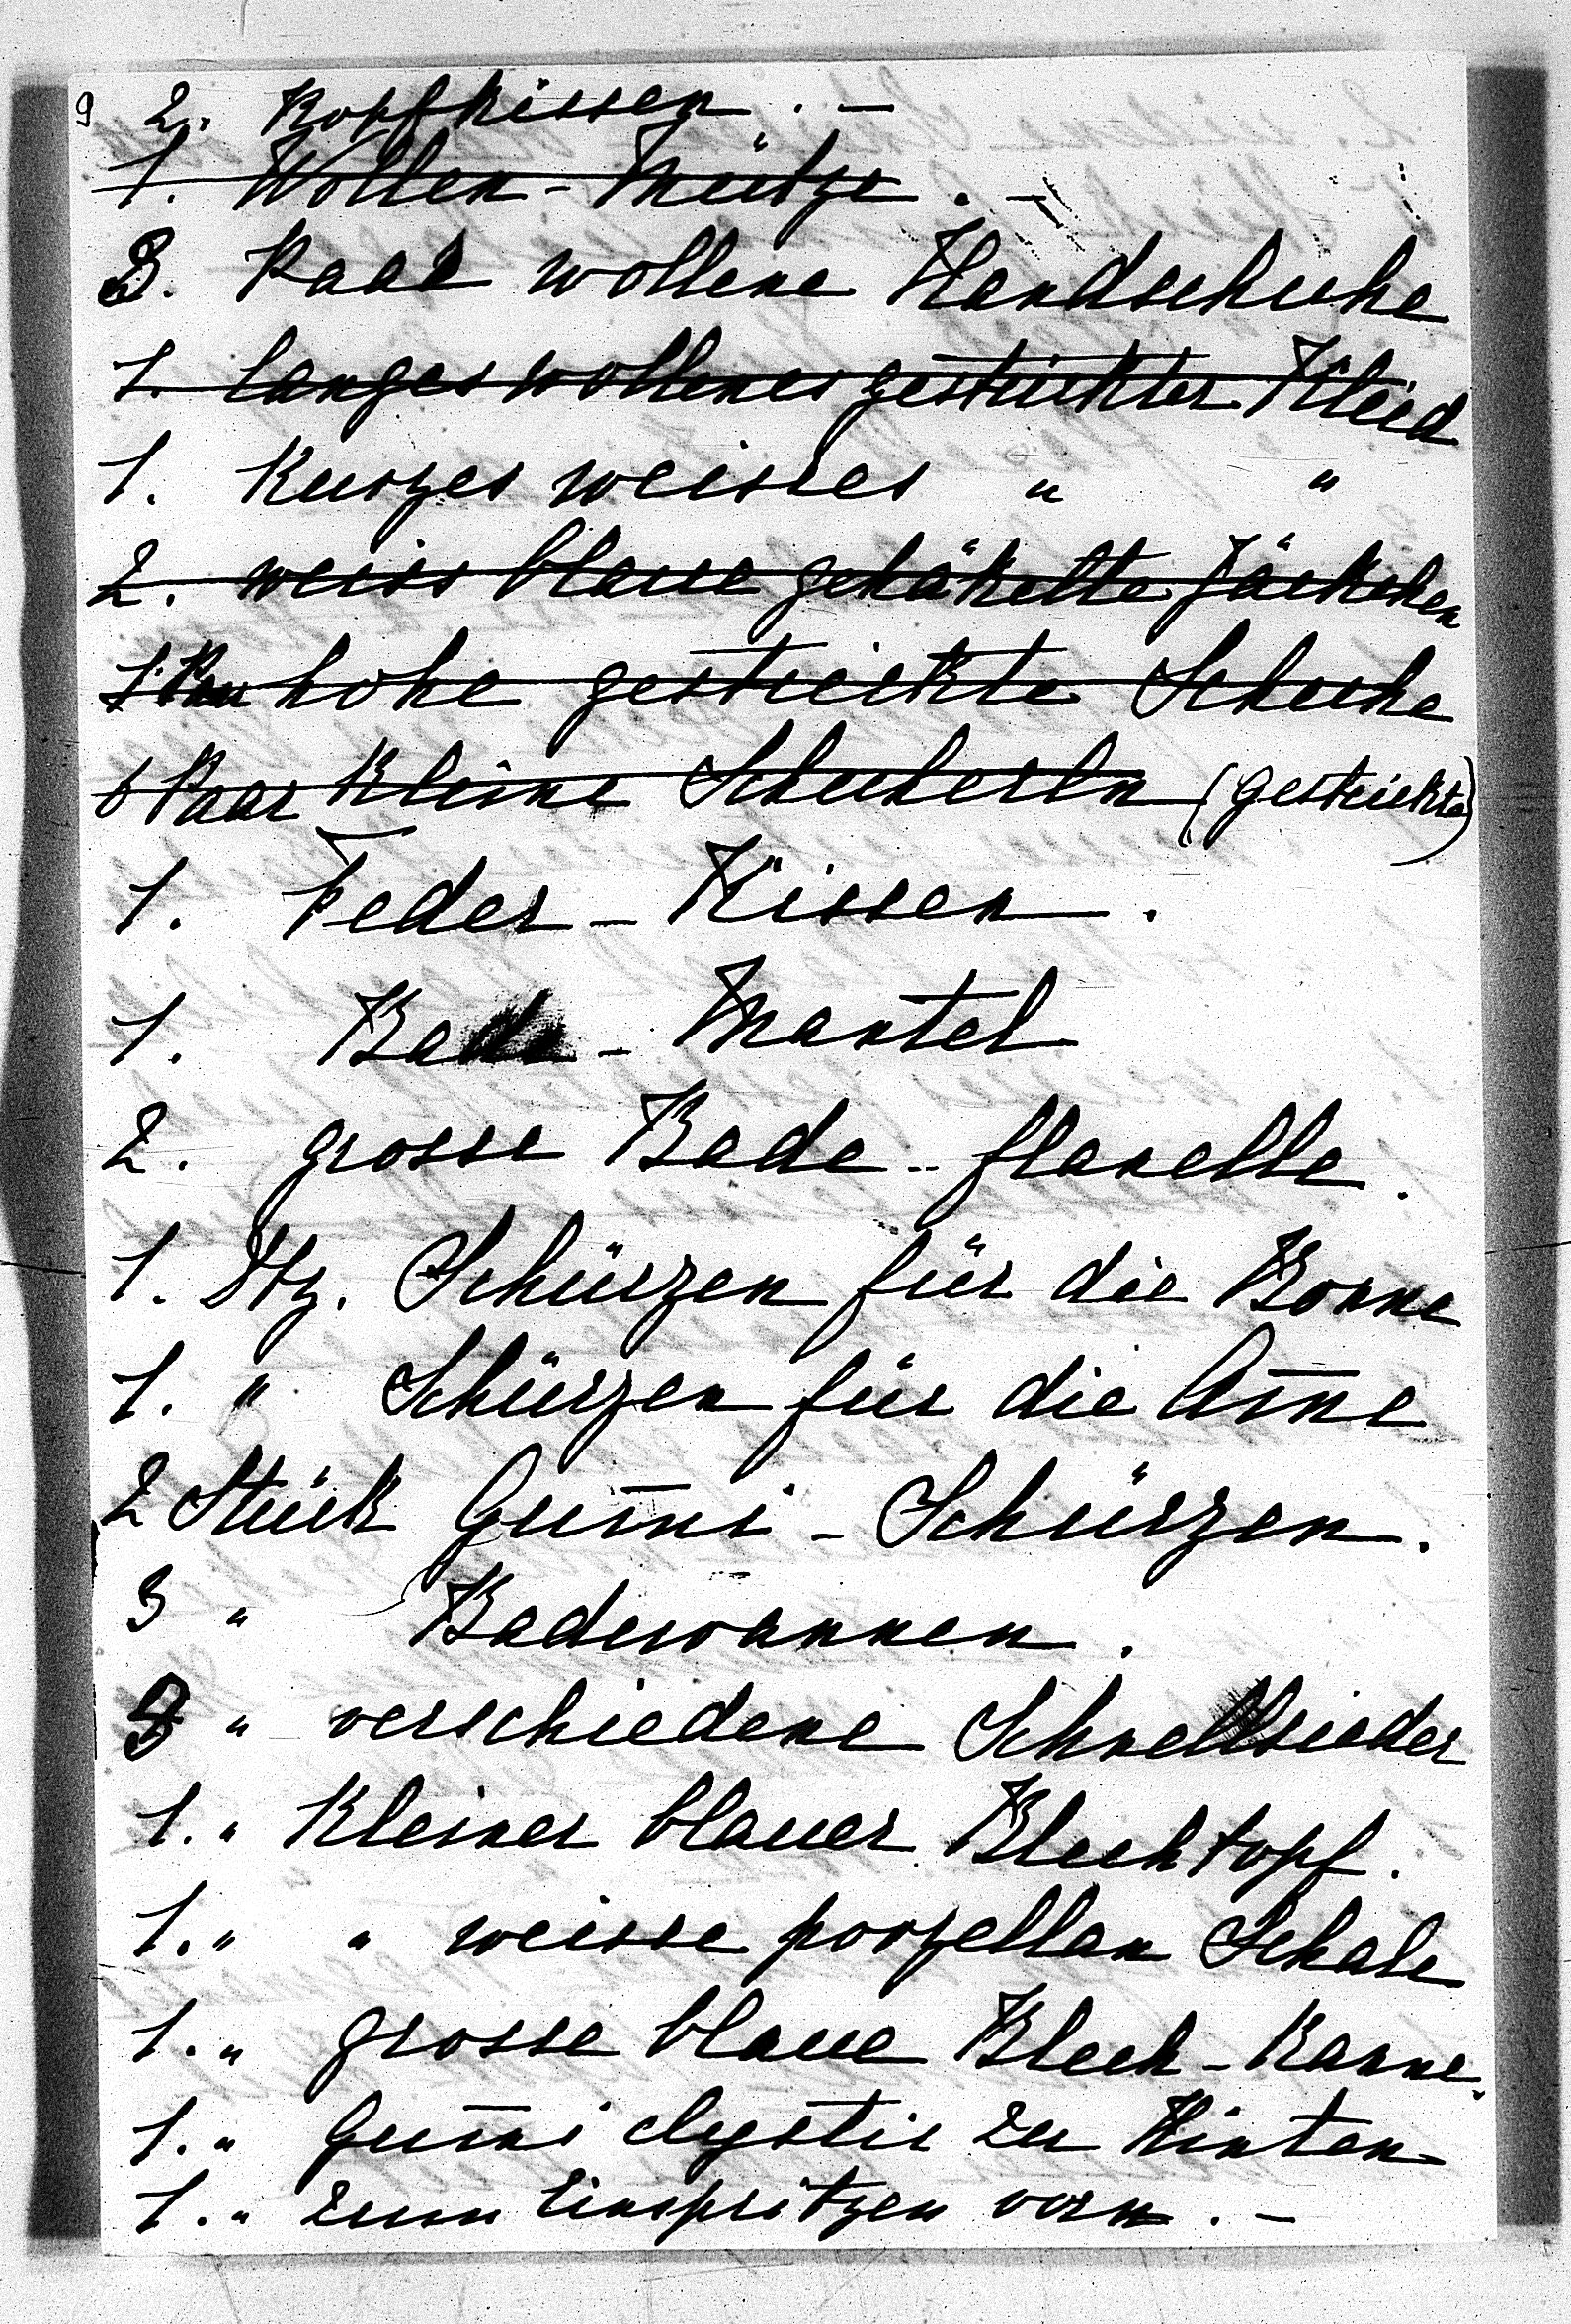 9 2. Kopfkissen. —
1. Wollen - Mütze. —
3. Paar wollene Handschuhe
1. langes wollenes gestrickter Kleid
1. Kurzes weisses " "
2. weiss blaue gehäkelte Jäckchen
1. Paar hohe gestrickte Schuhe
6 Paar Kleine Schucherln (gestrickte)
1. Feder - Kissen.
1. Bade - Mantel
2. grosse Bade - flanelle.
1. Dtz. Schürzen für die Bonne
1. " Schürzen für die Am̅e
2 Stück Gum̅i - Schürzen.
3 " Badewannen.
3 " verschiedene Schnellsieder
1. " Kleiner blauer Blechtopf.
1. " " weisse porzellan Schale
1. " grosse blaue Blech - Kanne.
1. " Gum̅i clystir zu Hinten
1. " zum Einspritzen vorn. —